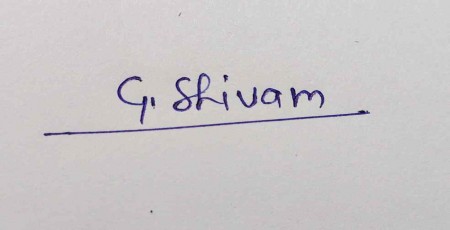 G. Shivam